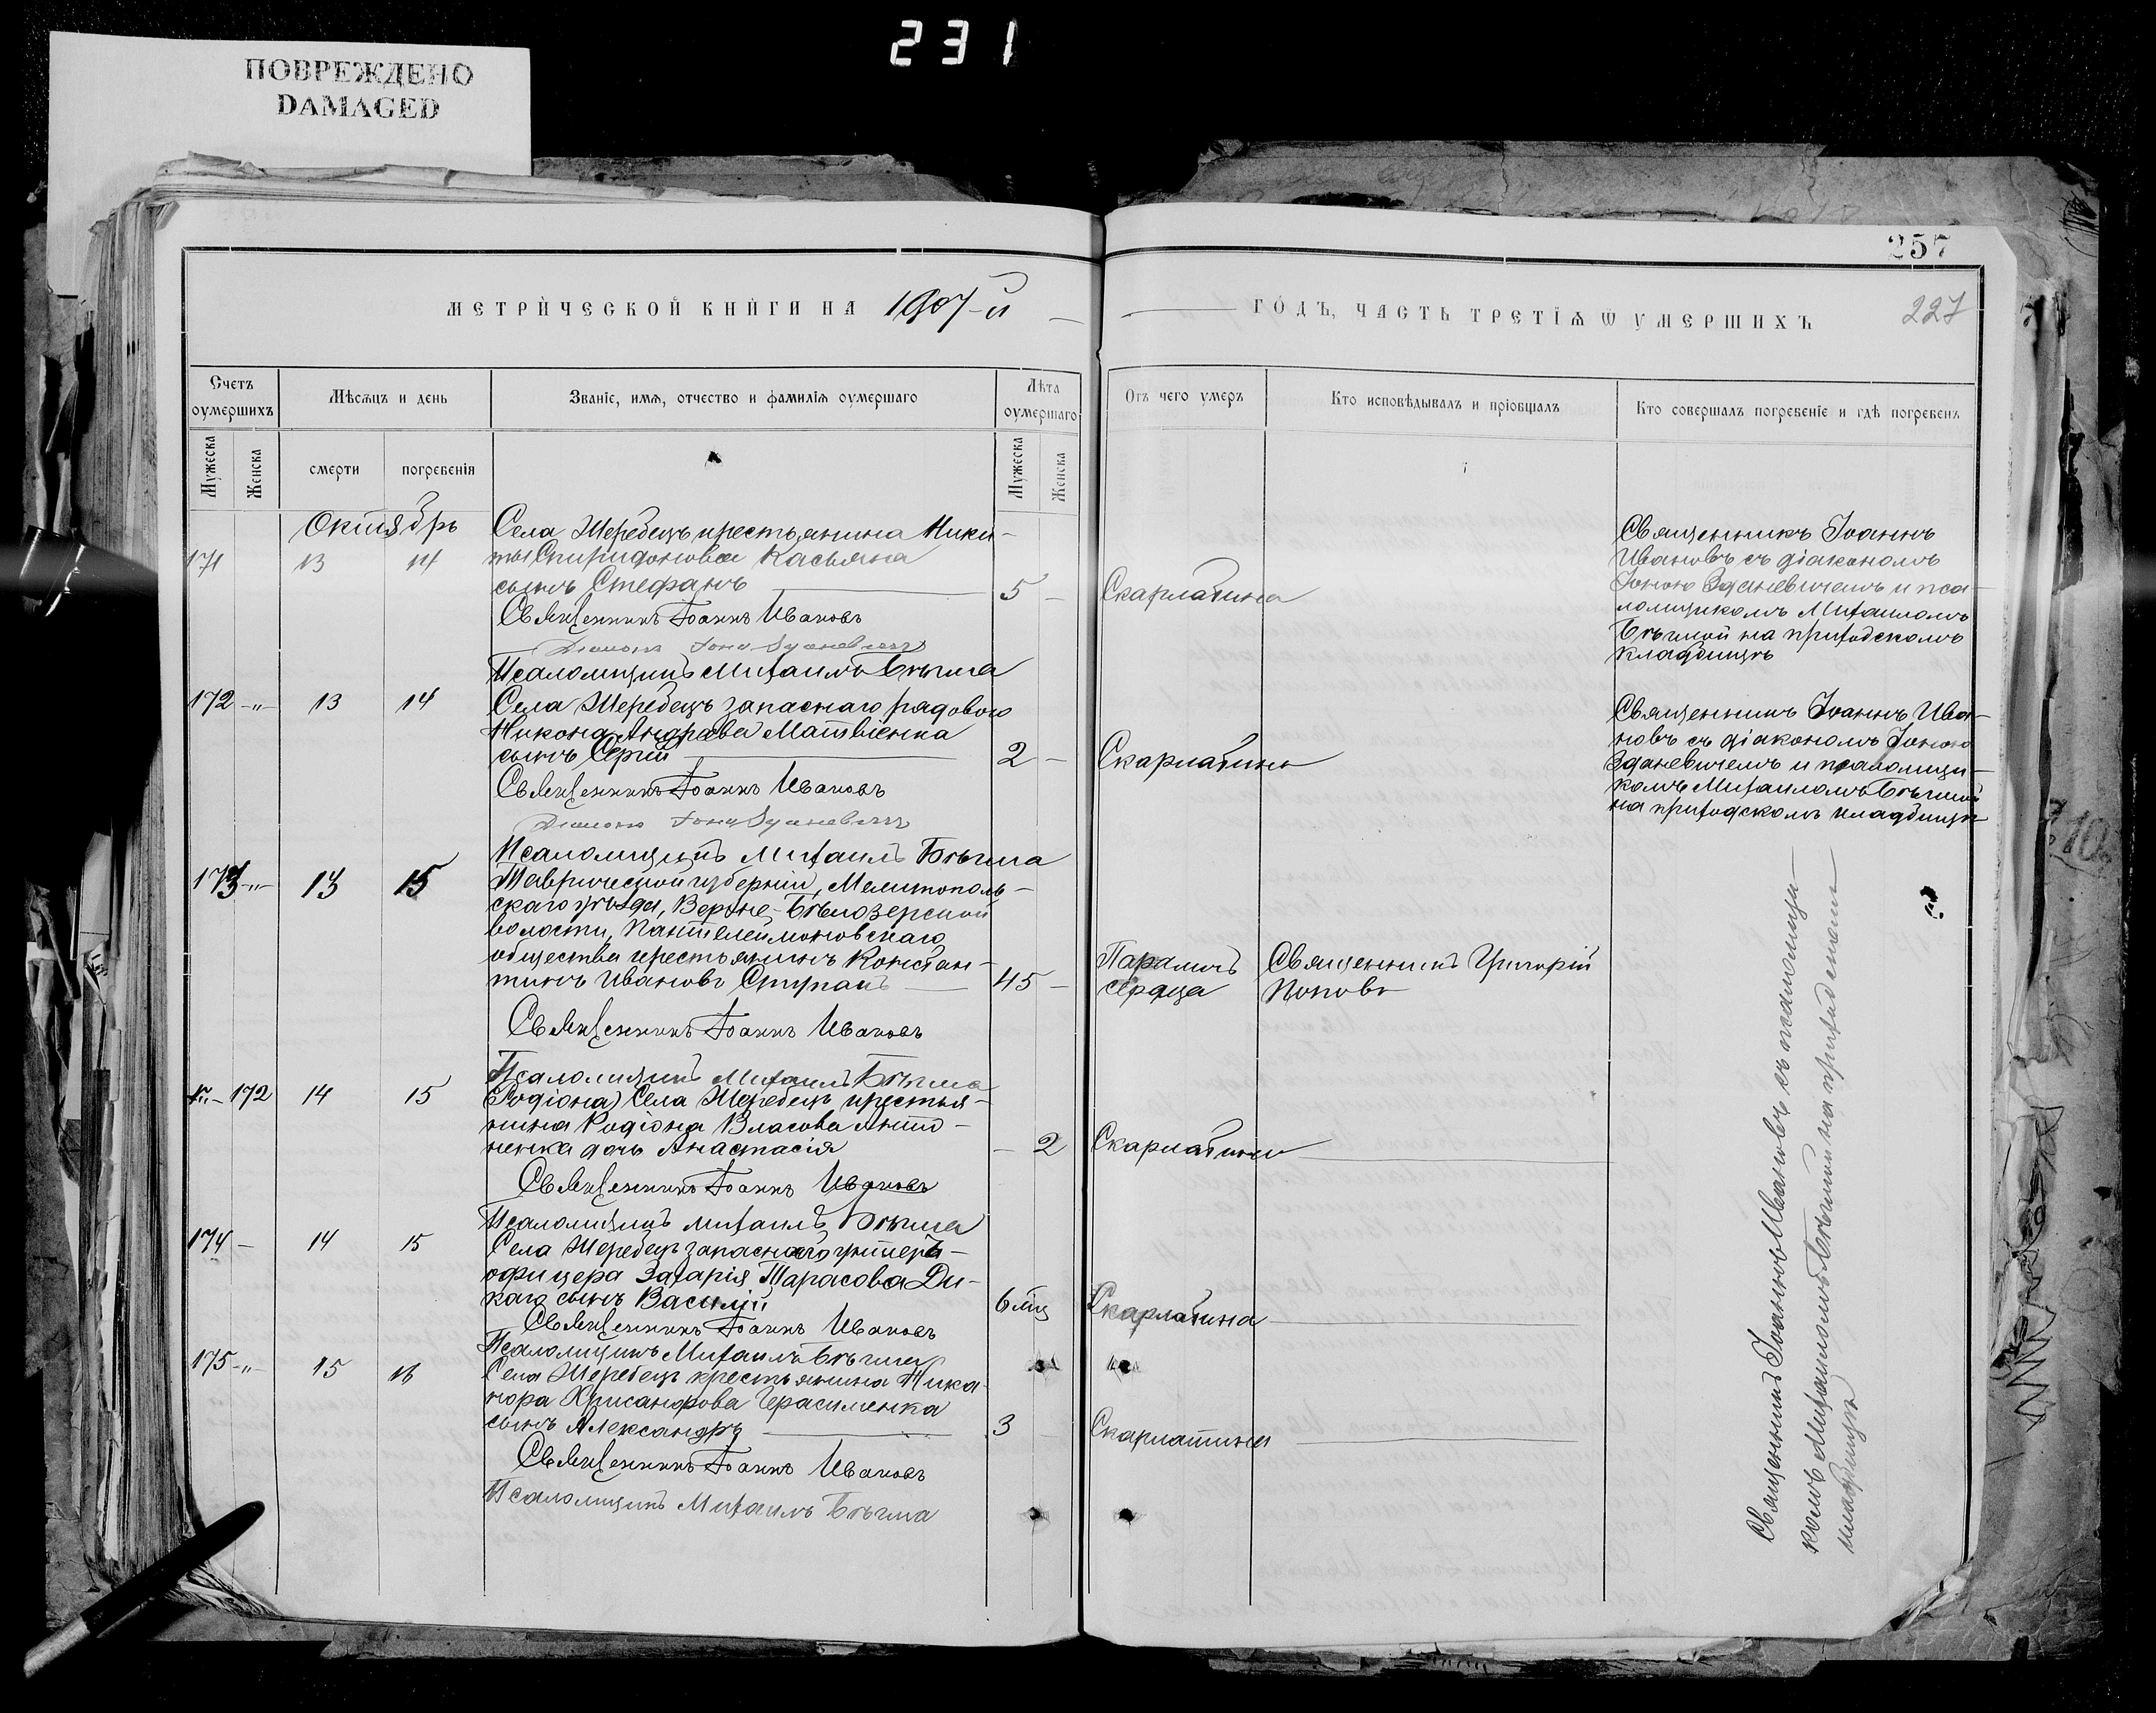 231
ПОВРЕЖДЕНО
DAMAGED
257
МЕТРИЧЕСКОЙ КНИГИ НА 1907-й
ГОДЪ, ЧАСТЬ ТРЕТІЯ Ѿ УМЕРШИХЪ
227
Счетъ оумершихъ
Мѣсяцъ и день
Званіе, имя, отчество и фамилія оумершаго
Лѣта оумершаго
Отъ чего умеръ
Кто исповѣдывалъ и пріобщалъ
Кто совершалъ погребеніе и гдѣ погребенъ
Мужеска
Женска
смерти
погребенія
Мужеска
Женска
Октябрь
171 13 14
Села Жеребецъ крестьянина Ники-
ты Спиридонова Касьяна
сынъ Стефанъ 5 Скарлатина
Священникъ Іоаннъ
Ивановъ съ діакономъ
Іоною Зданевичемъ и пса-
ломщикомъ Михаиломъ
Бѣгмой на приходскомъ
кладбищѣ
Священникъ Іоаннъ Ивановъ
Діаконъ Іона Зданевичъ
Псаломщикъ Михаилъ Бѣгма
172 -"- 13 14
Села Жеребецъ запаснаго рядового
Никона Андреева Матвіенка
сынъ Сергій 2 Скарлатина
Священникъ Іоаннъ Ива-
новъ съ діакономъ Іоною
Зданевичемъ и псаломщи-
комъ Михаиломъ Бѣгмой
на приходскомъ кладбищѣ
Священникъ Іоаннъ Ивановъ
Діаконъ Іона Зданевичъ
Псаломщикъ Михаилъ Бѣгма
173 -"- 13 15
Таврической губерніи, Мелитополь-
скаго уѣзда, Верхне-Бѣлозерской
волости, Пантелеимоновскаго
общества крестьянинъ Констан-
тинъ Ивановъ 45
Параличъ
сердца
Священникъ Григорій
Поповъ
Священникъ Іоаннъ Ивановъ
Псаломщикъ Михаилъ Бѣгма
-"- 172 14 15
(Родіона) Села Жеребецъ крестья-
нина Родіона Власова Анто-
ненка дочь Анастасія - 2 Скарлатина
Священникъ Іоаннъ Ивановъ
Псаломщикъ Михаилъ Бѣгма
174 - 14 15
Села Жеребецъ запаснаго унтеръ-
офицера Захарія Тарасова Ди-
каго сынъ Василій 6 мцъ Скарлатина
Священникъ Іоаннъ Ивановъ
Псаломщикъ Михаилъ Бѣгма
175 -"- 15 16
Села Жеребецъ крестьянина Ника-
нора Хрисанфова Герасименка
сынъ Александръ 3 Скарлатина
Священникъ Іоаннъ Ивановъ
Псаломщикъ Михаилъ Бѣгма
Священникъ Іоаннъ Ивановъ съ псаломщи-
комъ Михаиломъ Бѣгмой на приходскомъ
кладбищѣ